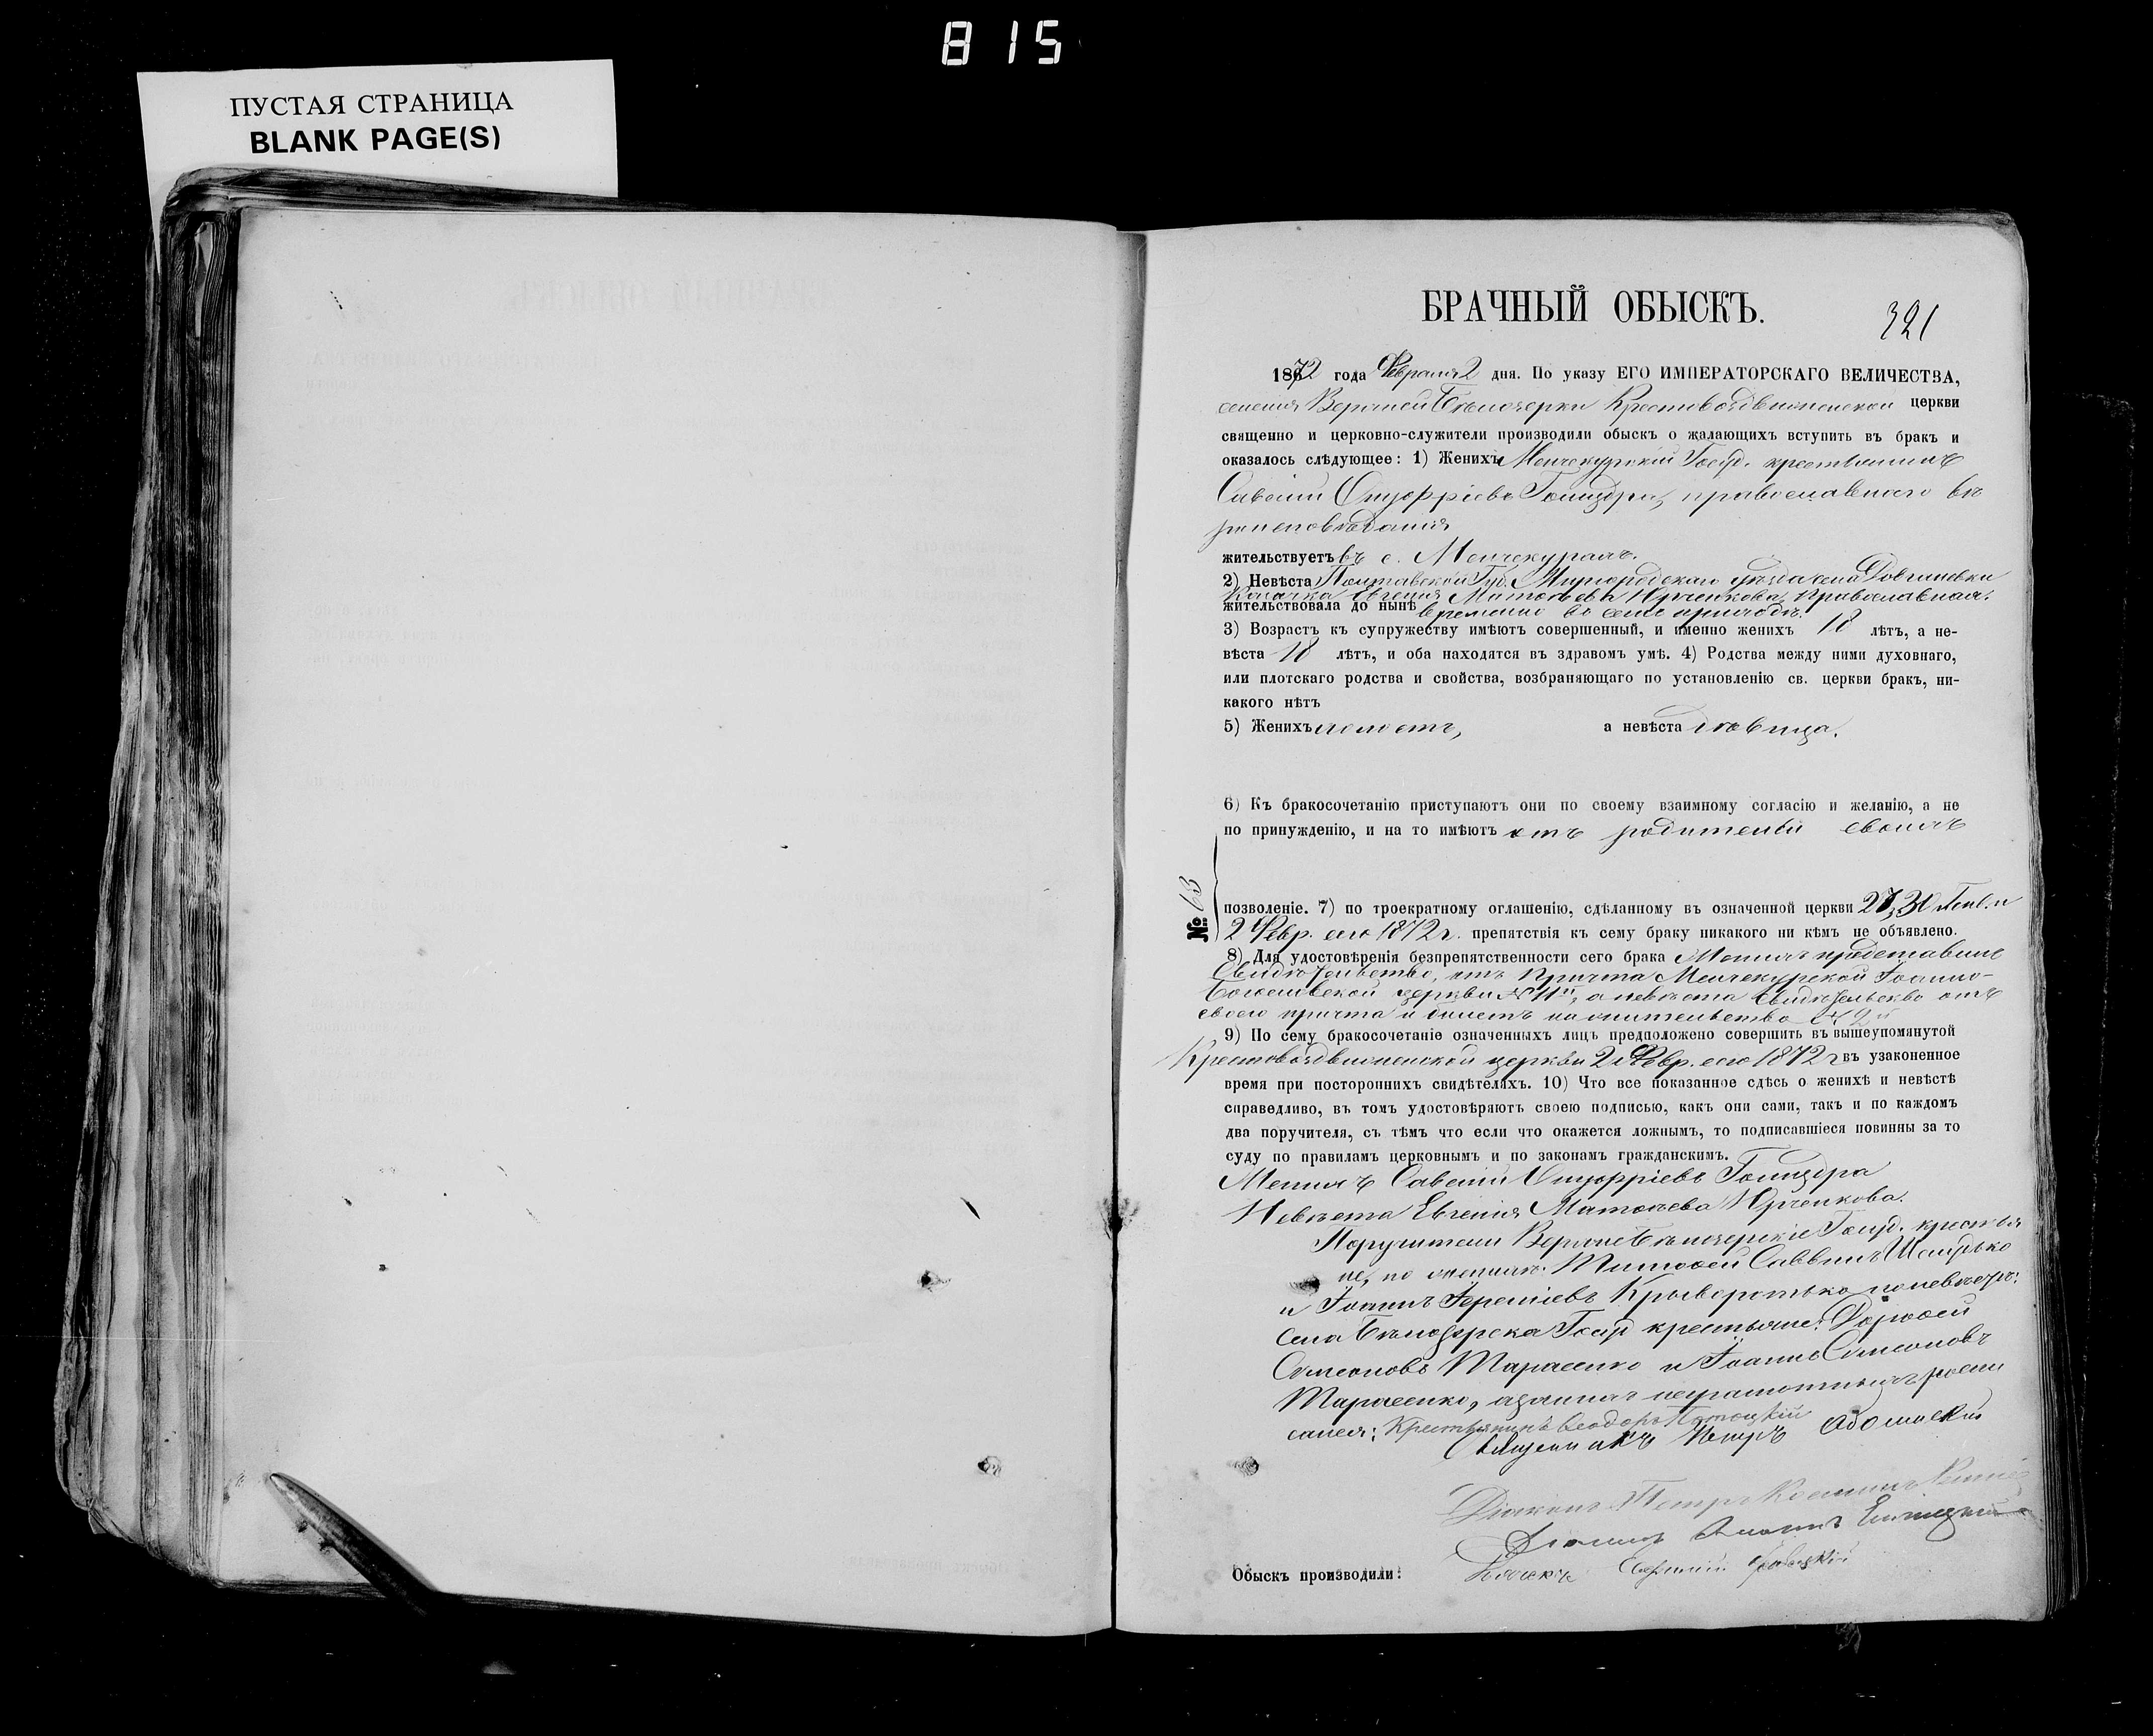 815
ПУСТАЯ СТРАНИЦА
BLANK PAGE(S)
БРАЧНЫЙ ОБЫСКЪ.
321
1872 года Февраля 2 дня. По указу ЕГО ИМПЕРАТОРСКАГО ВЕЛИЧЕСТВА,
селенія Верхней Бѣлозерки Крестовоздвиженской церкви
священно и церковно-служители производили обыскъ о жалающихъ вступить въ бракъ и
оказалось слѣдующее: 1) Женихъ Менчекурскій Госуд. крестьянинъ
Савелій Онуфріевъ Гонидра, православнаго вѣ
роисповѣданія
жительствуетъ въ с. Менчекурахъ.
2) Невѣста Полтавской Губ. Миргородскаго уѣзда села
Козачка Евгенія Матѳѣева Юрченкова, Православная.
жительствовала до нынѣ временно въ семъ приходѣ.
3) Возрастъ къ супружеству имѣютъ совершенный, и именно женихъ 18 лѣтъ, а не-
вѣста 18 лѣтъ, и оба находятся въ здравомъ умѣ. 4) Родства между ними духовнаго,
или плотскаго родства и свойства, возбраняющаго по установленію св. церкви бракъ, ни-
какого нѣтъ
5) Женихъ холостъ, а невѣста дѣвица.
6) Къ бракосочетанію приступаютъ они по своему взаимному согласію и желанію, а не
по принужденію, и на то имѣютъ отъ родителей своихъ
№ 63
позволеніе. 7) по троекратному оглашенію, сдѣланному въ означенной церкви 27, 30 Генв. и
2 Февр. сего 1872 г. препятствія къ сему браку никакого ни кѣмъ не объявлено.
8) Для удостовѣренія безпрепятственности сего брака Женихъ представилъ
Свидѣтельство, отъ Причта Менчекурской Іоанно-
Богословской церкви № 11й, а невѣста свидѣтельство отъ
своего причта и билетъ на жительство № 2й
9) По сему бракосочетаніе означенныхъ лицъ предположено совершить въ вышеупомянутой
Крестовоздвиженской церкви 2 Февр. сего 1872 г въ узаконенное
время при постороннихъ свидѣтеляхъ. 10) Что все показанное сдѣсь о женихѣ и невѣстѣ
справедливо, въ томъ удостовѣряютъ своею подписью, какъ они сами, такъ и по каждомъ
два поручителя, съ тѣмъ что если что окажется ложнымъ, то подписавшіеся повинны за то
суду по правиламъ церковнымъ и по законамъ гражданскимъ.
Женихъ Савелій Онуфріевъ Гонидра
Невѣста Евгенія Матѳѣева Юрченкова.
Поручители Верхне Бѣлозерскіе Госуд. крестья
не, по женихѣ: Тимоѳей Саввинъ
и Іоаннъ Іереміевъ Криворотько по невѣстѣ:
села Бѣлозерска Госуд крестьяне: Дороѳей
Симеоновъ Тарасенко и Іоаннъ Симеоновъ
Тарасенко, а за нихъ неграмотныхъ роспи
сался: Крестьянинъ Ѳеодоръ
Священникъ Петръ
Діаконъ Петръ
Діаконъ
Обыскъ производили: